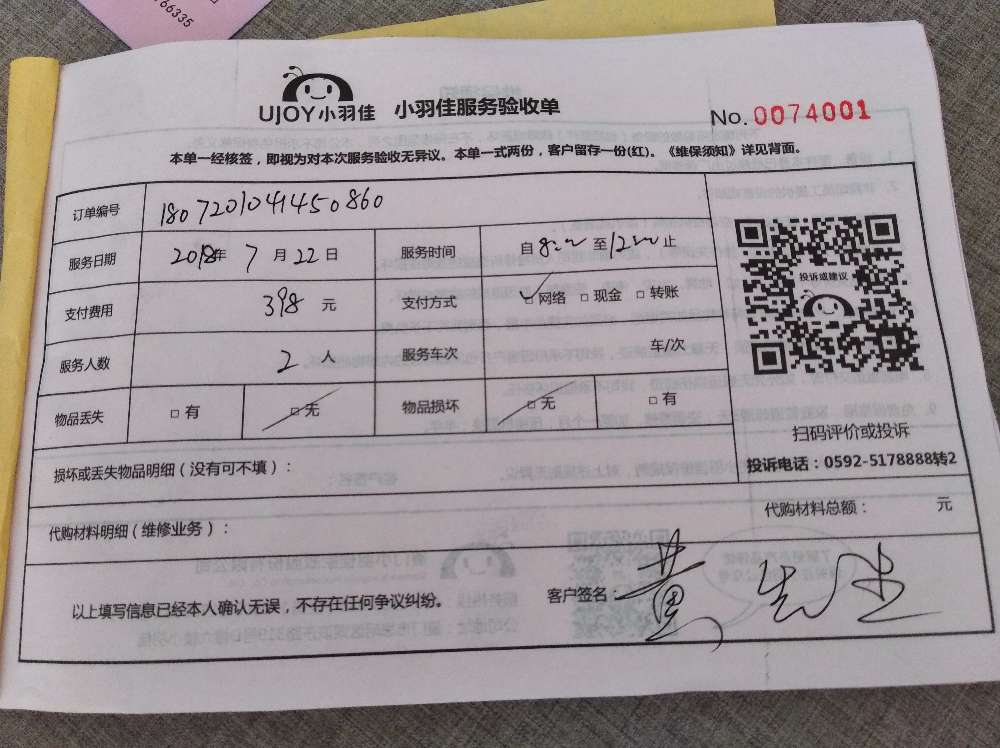 66335
UJOY小羽佳 小羽佳服务验收单
No.0074001
本单一经核签，即视为对本次服务验收无异议。本单一式两份，客户留存一份(红)。《维保须知》详见背面。
订单编号 180720104145086​0
服务日期 2018年 7 月 22 日 服务时间 自 8:00 至 12:00 止
支付费用 398 元 支付方式 网络 □ 现金 □ 转账
服务人数 2 人 服务车次 车/次
物品丢失 □ 有 □ 无 物品损坏 □ 无 □ 有
投诉或建议
扫码评价或投诉
投诉电话：0592-5178888转2
损坏或丢失物品明细（没有可不填）：
代购材料明细（维修业务）：
代购材料总额： 元
以上填写信息已经本人确认无误，不存在任何争议纠纷。
客户签名：黄先生